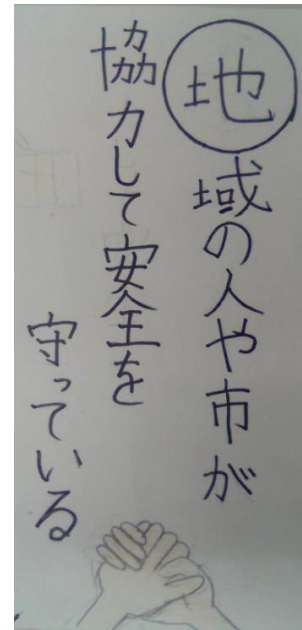 地域の人や市が
協力して安全を
守っている